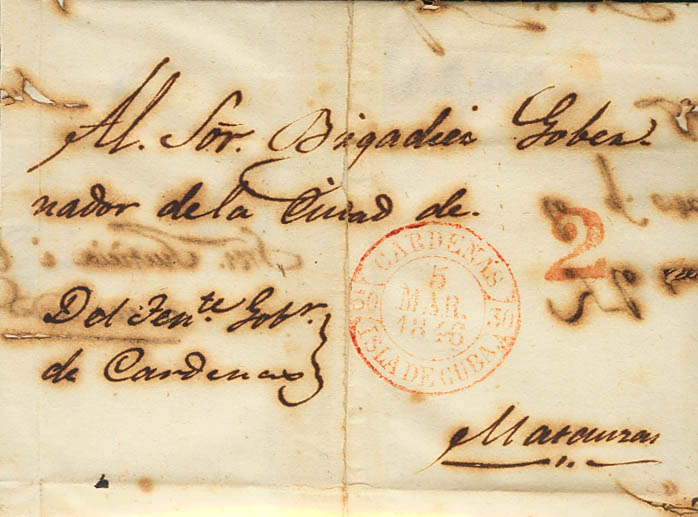 Al. Sõr. Brigadier Gober-
nador de la Ciudad de.
2
CARDENAS
5
MAR.
1846
ISLA DE CUBA
Del Tente. Gobr.
de Cardenas
Matanzas